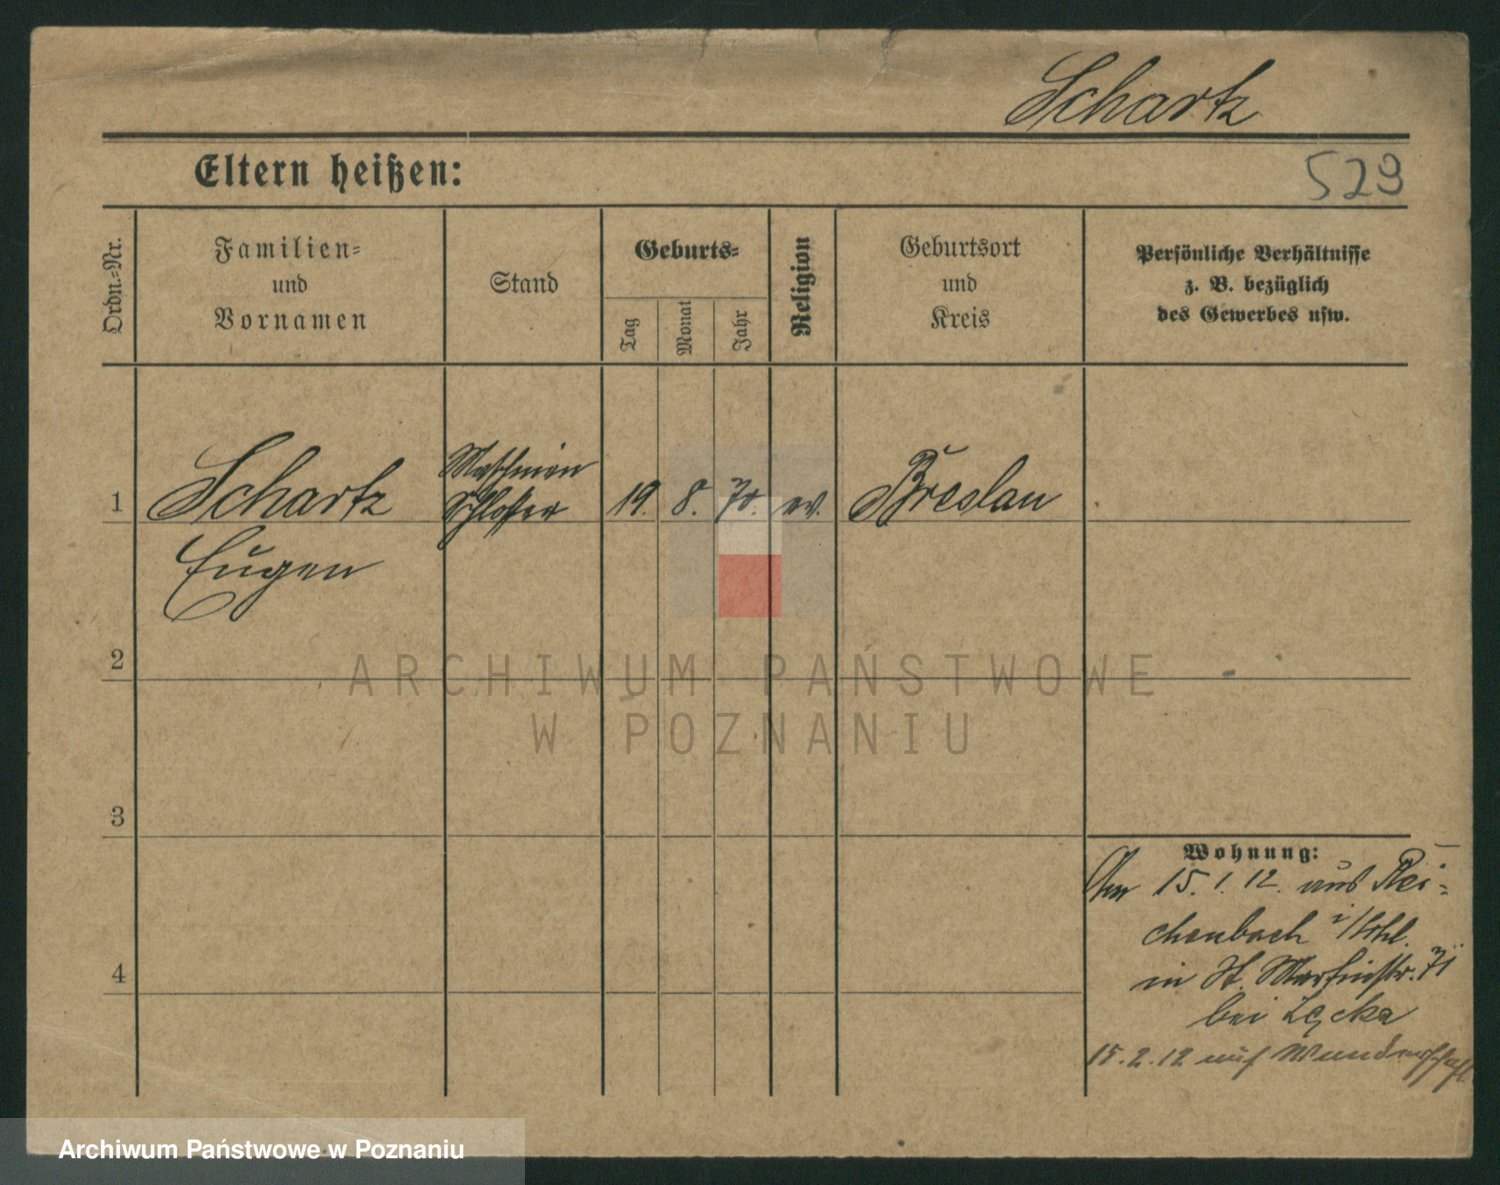 Schartz
Eltern heißen:
529
Ordn.-Nr.
Familien-
und
Vornamen
Stand
Geburts-
Tag
Monat
Jahr
Religion
Geburtsort
und
Kreis
Persönliche Verhältnisse
z. B. bezüglich
des Gewerbes usw.
1
Schartz
Eugen
Maschinen
Schlosser
19.
8.
70.
ev.
Breslau
2
3
4
ARCHIWUM PAŃSTWOWE
W POZNANIU
Wohnung:
Am 15.1.12. aus Rei-
chenbach i/Schl.
in St. Martinstr. 71
bei
15.2.12 auf Wanderschaft
Archiwum Państwowe w Poznaniu